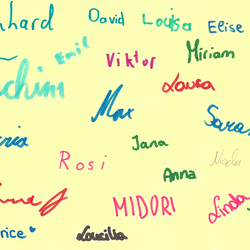 nhard David Louisa Elise
Emil Viktor Miriam
chim Laura
Max Sara
ria Jana
Rosi Anna
MIDORI Linda
rice Lucilla